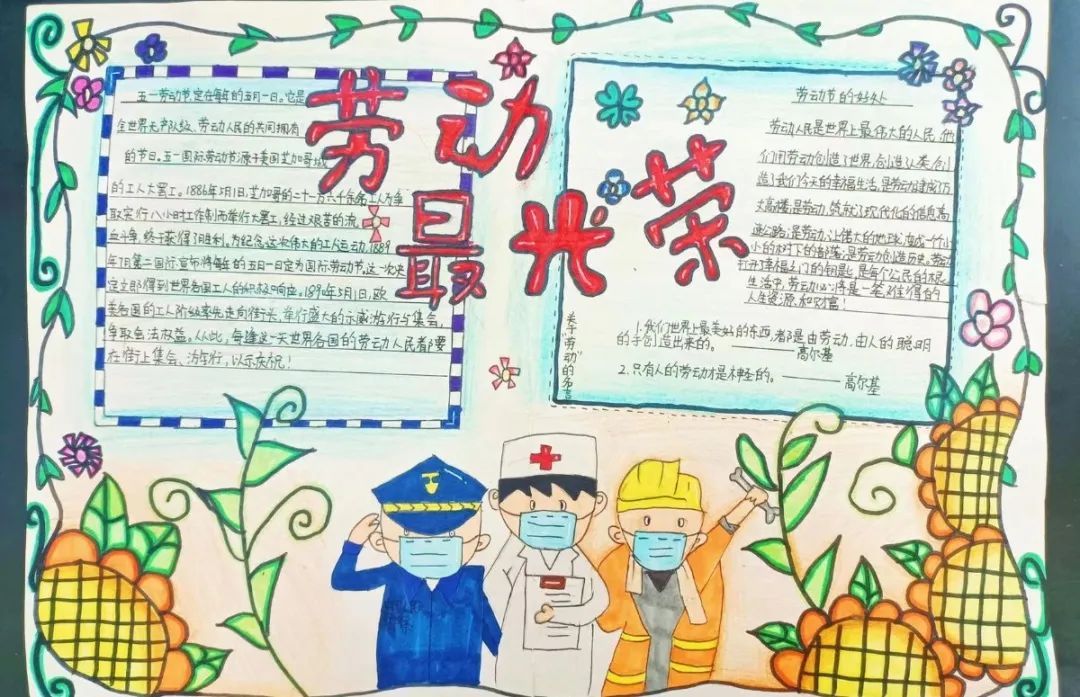 劳动
最光荣
五一劳动节,定在每年的五月一日。它是
全世界无产队级、劳动人民的共同拥有
的节日。五一国际劳动节源于美国芝加哥城
的工人大罢工。1886年5月1日,芝加哥的二十一万六千余名工人为争
取实行八小时工作制而举行大罢工,经过艰苦的流
血斗争,终于获得了胜利。为纪念这次伟大的工人运动,1889
年7月第二国际宣布将每年的五月一日定为国际劳动节。这一次决
定立即得到世界各国工人的积极响应。1890年5月1日,欧
美各国的工人阶级率先走向街头,举行盛大的示威游行与集会,
争取合法权益。从此,每逢这一天世界各国的劳动人民都要
在街上集会、游行,以示庆祝!
劳动节的好处
劳动人民是世界上最伟大的人民,他
们用劳动创造了世界,创造人类,创
造了我们今天的幸福生活,是劳动建成了万
大高楼;是劳动,筑就了现代化的信息高
速公路;是劳动,让偌大的地球变成一个小
小的村下的部落;是劳动创造历史。劳动
打开幸福之门的钥匙,是每个公民的
生活中,劳动必将是一笔难得的
人生资源和财富!
关于劳动的名言
1.我们世界上最美好的东西,都是由劳动、由人的聪明
的手创造出来的。——高尔基
2.只有人的劳动才是神圣的。——高尔基